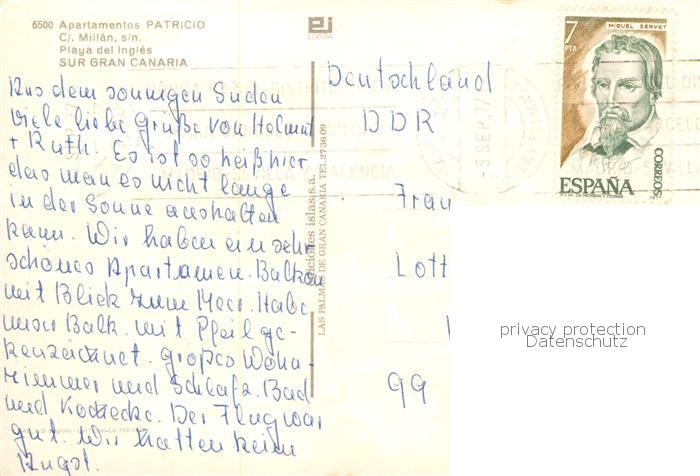 6500 Apartamentos PATRICIO
C/. Millán, s/n.
Playa del Inglés
SUR GRAN CANARIA
Aus dem sonnigen Süden
viele liebe Grüße von Helmut
+ Ruth. Es ist so heiß hier,
das man es nicht lange
in der Sonne aushalten
kann. Wir haben ein sehr
schönes Apartamen. Balkon
mit Blick zum Meer. Habe
unser Balk. mit Pfeil ge-
kenzeichnet. großes Wohn-
zimmer und Schlafz. Bad
und Kochecke. Der Flug war
gut. Wir hatten keine
Angst.
ediciones islas, s.a.
LAS PALMAS DE GRAN CANARIA TEL. 273609
ei
EDISSA
Deutschland
DDR
Frau
Lott
99
5 SEP. 77
MADRID-SEVILLA Y VALENCIA
7
PTA
MIGUEL SERVET
CORREOS
ESPAÑA
1977
privacy protection
Datenschutz